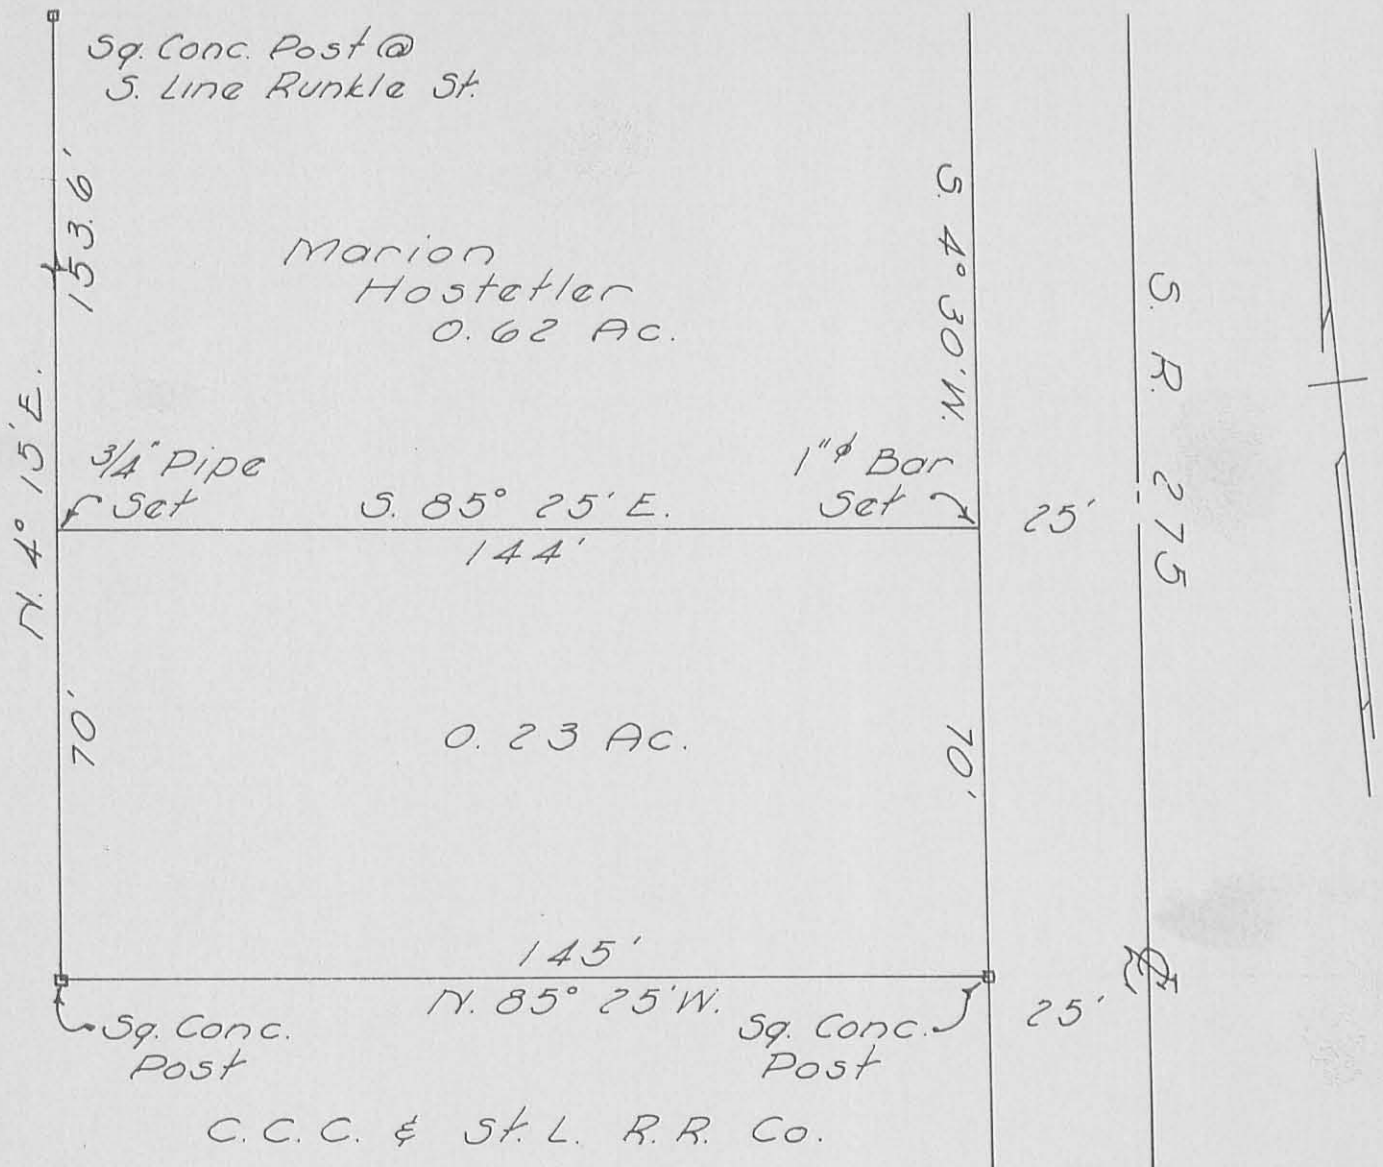 Sq. Conc. Post @
S. Line Runkle St.
153.6'
N. 4° 15' E.
Marion
Hostetler
0.62 Ac.
S. 4° 30' W.
S. R. 275
3/4" Pipe
Set
S. 85° 25' E.
144'
1"ϕ Bar
Set
25'
70'
0.23 Ac.
70'
145'
N. 85° 25' W.
Sq. Conc.
Post
Sq. Conc.
Post
25'
℄
C.C.C. & St. L. R.R. Co.